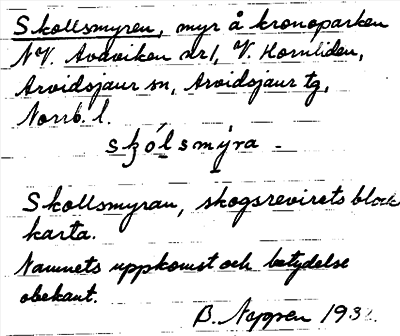 Skollsmyren, myr å kronoparken
NV. Avaviken nr1, V. Hornliden,
Arvidsjaur sn, Arvidsjaur tg,
Norrb. l.
skólsmýra -
Skollsmyran, skogsrevirets block
karta.
Namnets uppkomst och betydelse
obekant.
B. 193